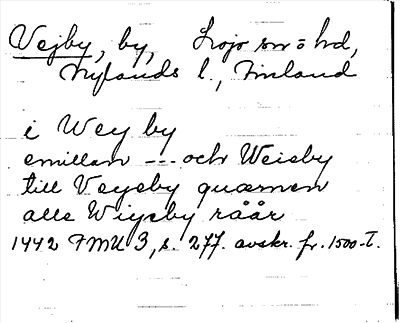 Vejby, by, Lojo sn o hd,
Nylands l., Finland
i Wey by
emillan --- och Weisby
till Veysby quæmen
alle Wigsby råår
1442 FMU 3, s. 277. avskr. fr. 1500-t.